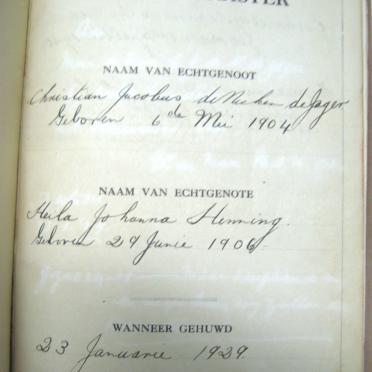 NAAM VAN ECHTGENOOT
Christian Jacobus de Jager
Geboren 6de Mei 1904
NAAM VAN ECHTGENOTE
Heila Johanna Henning.
Geboren 29 Junie 1906
WANNEER GEHUWD
23 Januarie 1929.